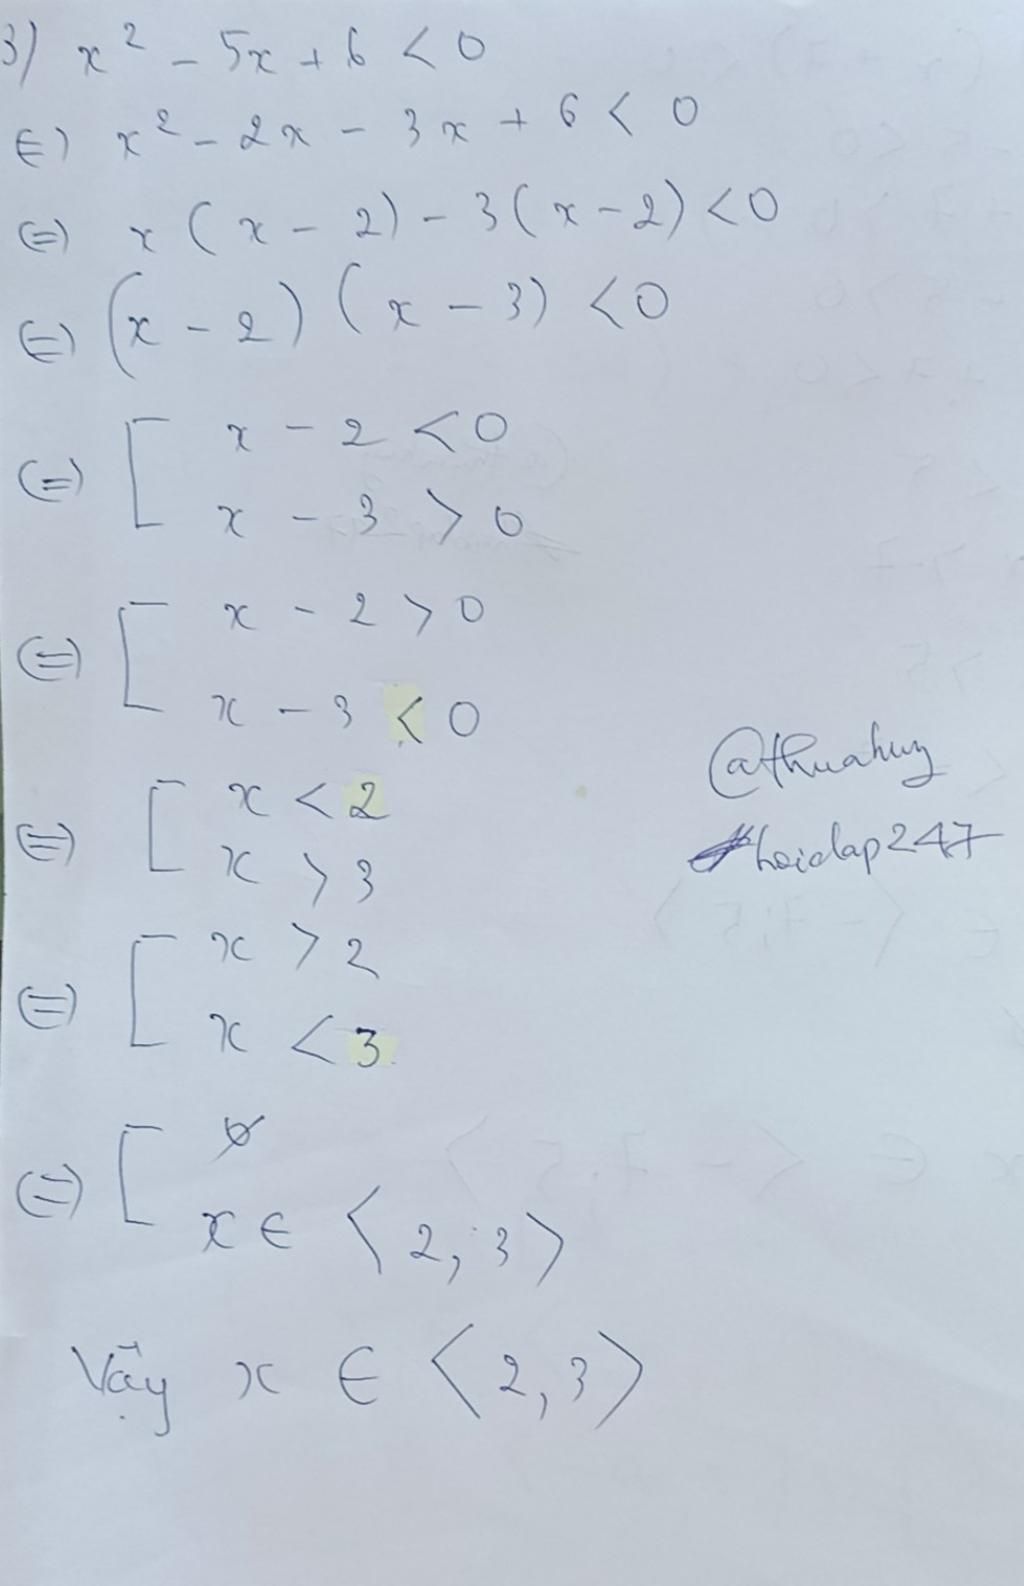 3) x² - 5x + 6 < 0
⇔ x² - 2x - 3x + 6 < 0
⇔ x(x - 2) - 3(x - 2) < 0
⇔ (x - 2)(x - 3) < 0
⇔ [ x - 2 < 0
x - 3 > 0
⇔ [ x - 2 > 0
x - 3 < 0
⇔ [ x < 2
x > 3
⇔ [ x > 2
x < 3
⇔ [ ∅
x ∈ ⟨2, 3⟩
Vậy x ∈ ⟨2, 3⟩
@thuahuy
#hoidap247